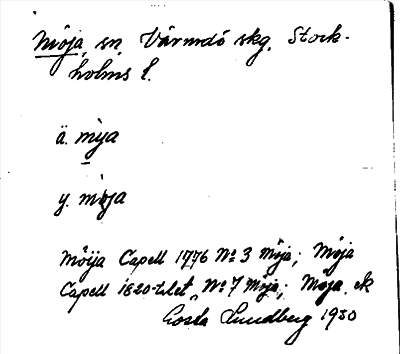 Möja, sn, Värmdö skg, Stock-
holms l.
ä. mya
y. möja
Möija Capell 1776 No 3 Möja; Möja
Capell 1820-talet, No 7 Möja; Möja, ek
Gösta Lundberg 1930